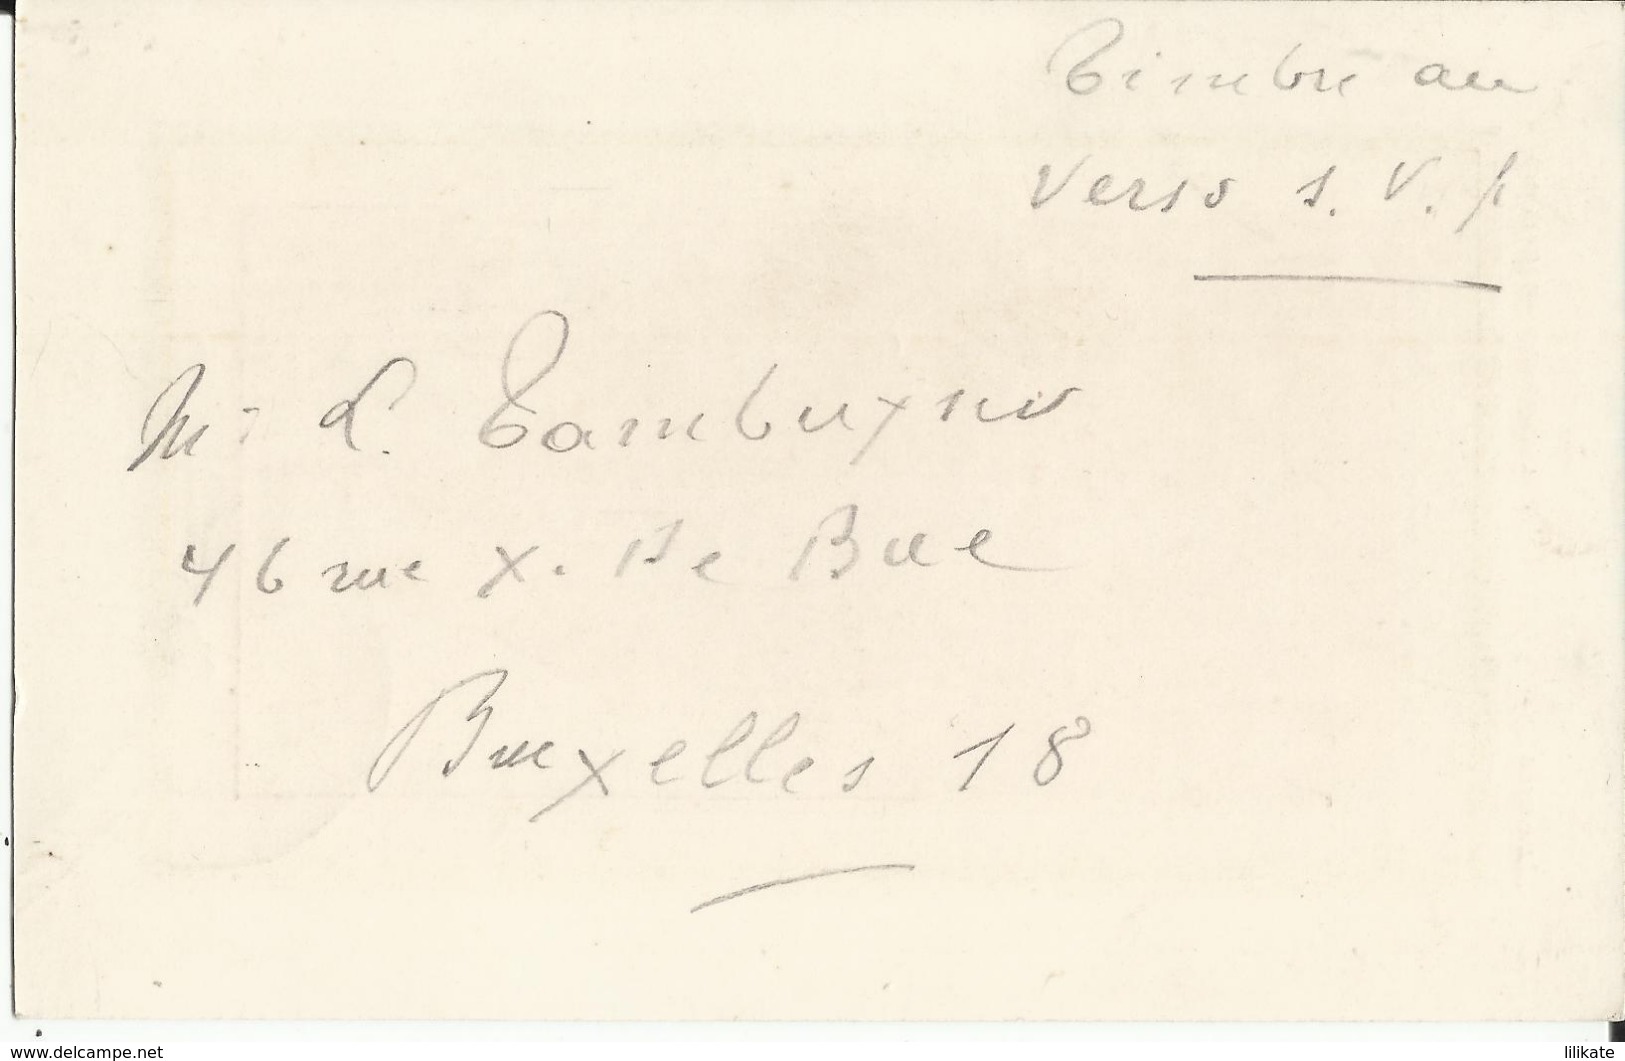 Timbre au
verso s.v.p
Mr L. Tambuyser
46 rue X. De Bue
Bruxelles 18
www.delcampe.net
lilikate